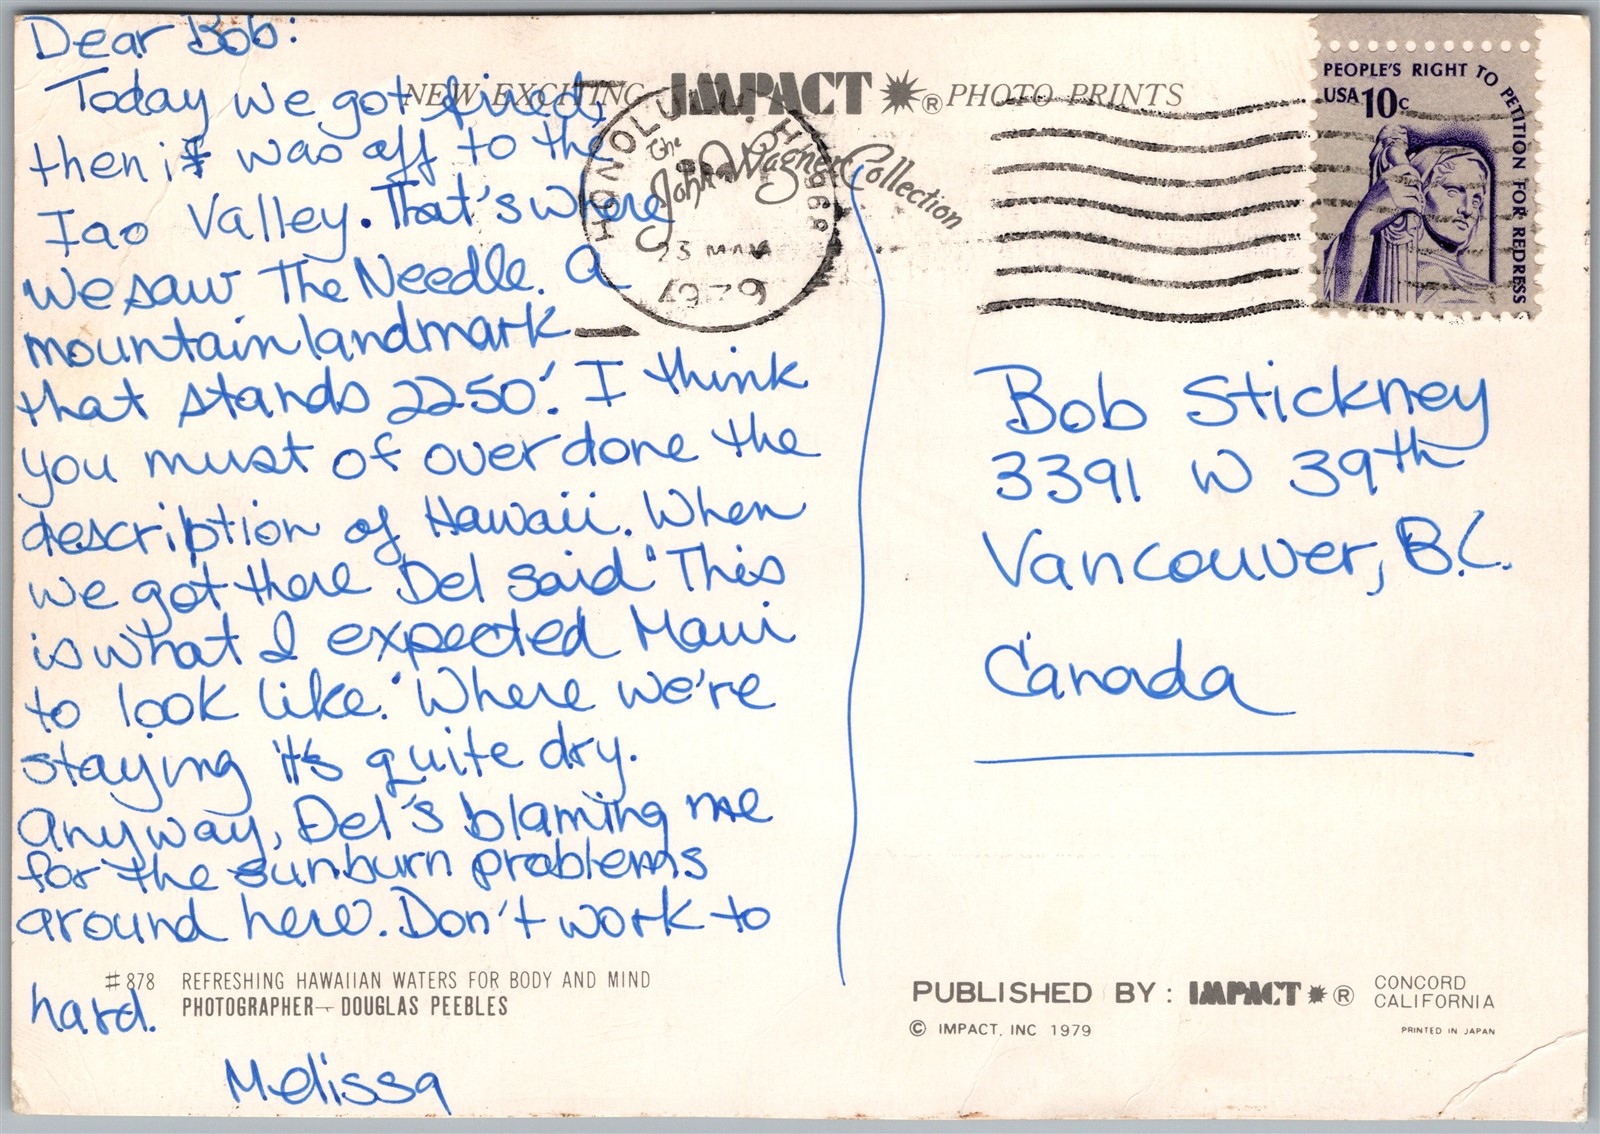 Dear Bob:
Today we got fried,
then it was off to the
Iao Valley. That's where
we saw The Needle. a
mountain landmark
that stands 2250'. I think
you must of over done the
description of Hawaii. When
we got there Del said "This
is what I expected Maui
to look like." Where we're
staying it's quite dry.
anyway, Del's blaming me
for the sunburn problems
around here. Don't work to
hard.
Melissa
NEW EXCITING IMPACT ® PHOTO PRINTS
The
John Wagner Collection
HONOLULU HI 968
23 MAY
1979
PEOPLE'S RIGHT TO PETITION FOR REDRESS
USA 10c
Bob Stickney
3391 W 39th
Vancouver, B.C.
Canada
#878 REFRESHING HAWAIIAN WATERS FOR BODY AND MIND
PHOTOGRAPHER — DOUGLAS PEEBLES
PUBLISHED BY: IMPACT ® CONCORD
CALIFORNIA
© IMPACT, INC 1979
PRINTED IN JAPAN